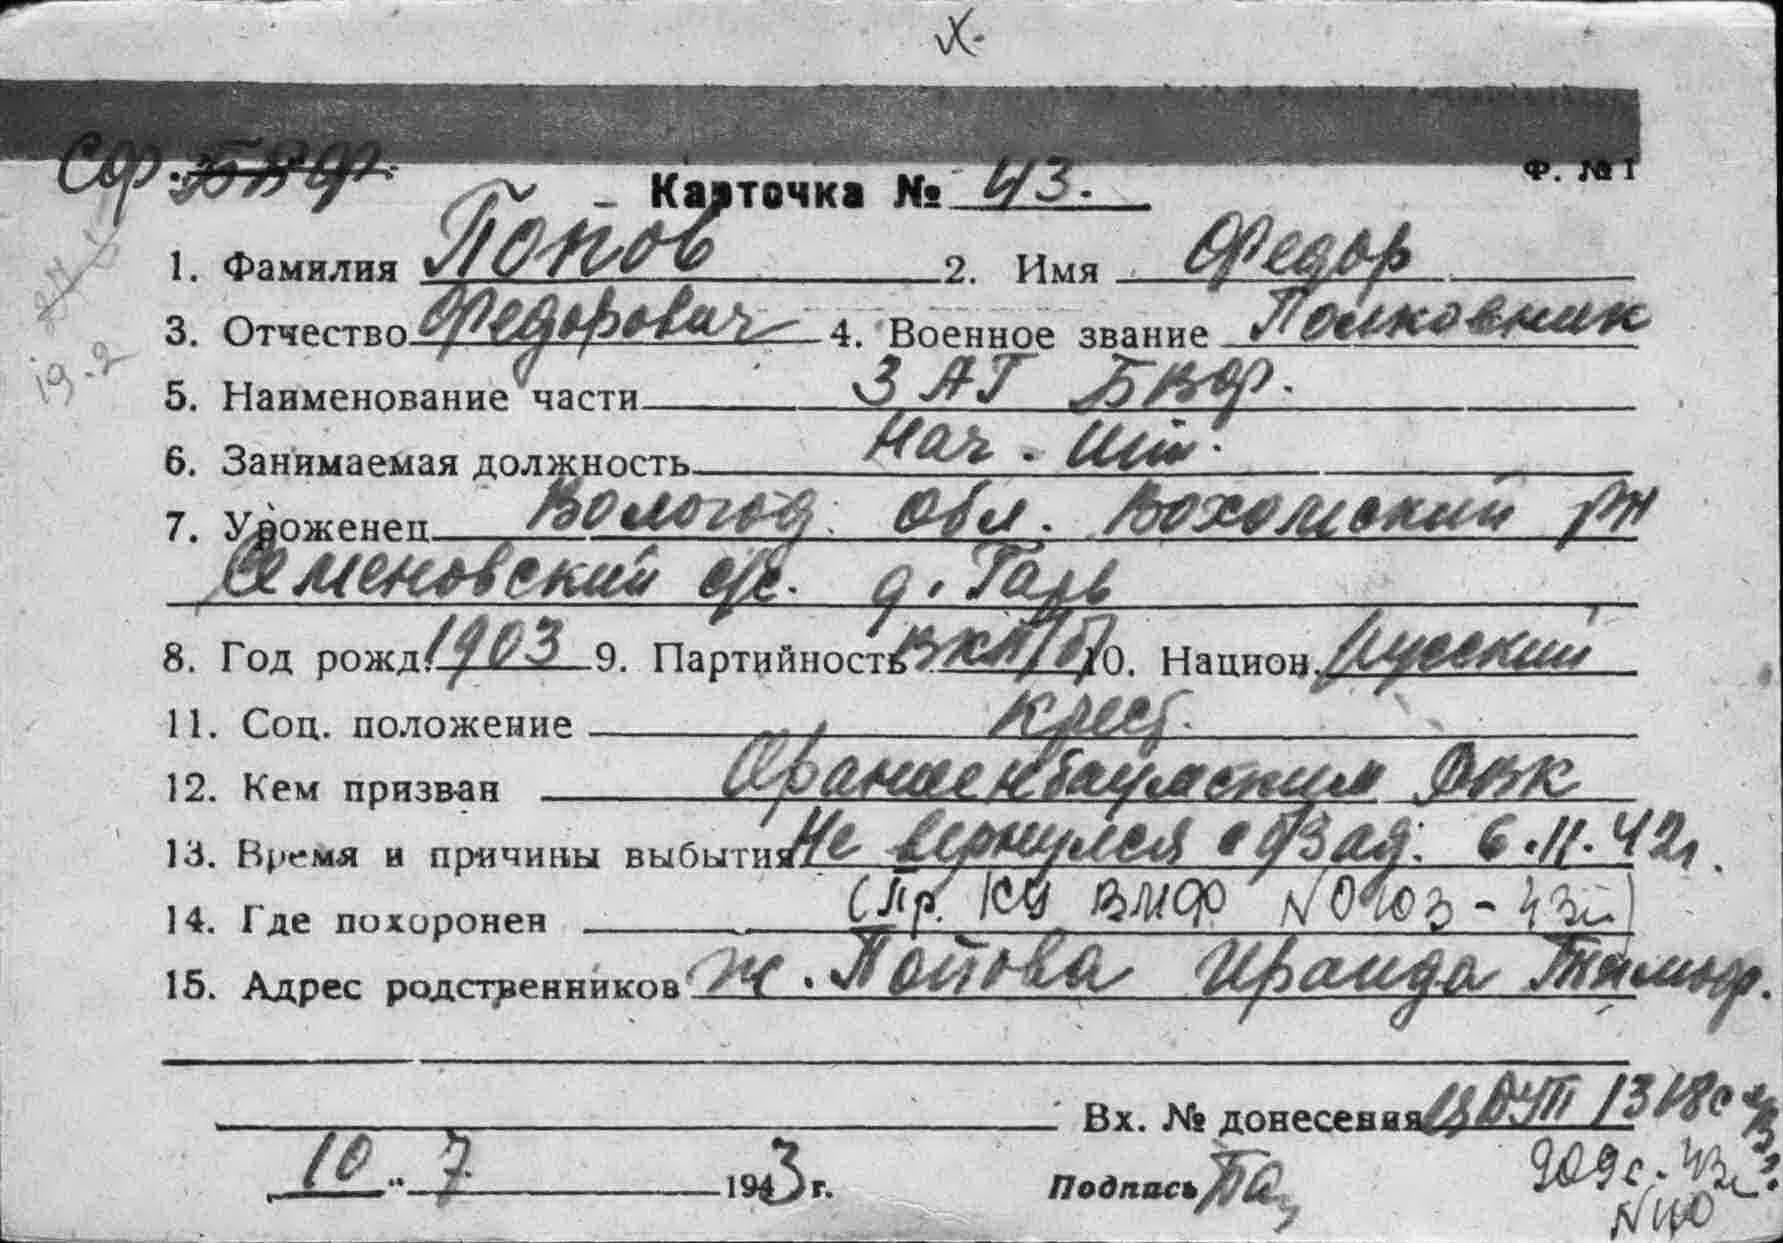 х.
Сф. БВФ.
Ф. № 1
Карточка № 43.
1. Фамилия Попов 2. Имя Федор
3. Отчество Федорович 4. Военное звание Полковник
5. Наименование части 3 АГ БВФ.
6. Занимаемая должность Нач. шт.
7. Уроженец Вологод. обл. Вохомский рн
Семеновский с/с. д. Гарь
19.2
8. Год рожд. 1903 9. Партийность ВКП/б/ 10. Национ. русский
11. Соц. положение крест.
12. Кем призван Ораниенбаумским РВК
13. Время и причины выбытия Не вернулся с б/зад. 6.11.42г.
14. Где похоронен (Пр. КУ ВМФ № 0103-43г)
15. Адрес родственников ж. Попова Ираида
Вх. № донесения 1318с
10 " 7 1943 г. Подпись
909с. 43г.